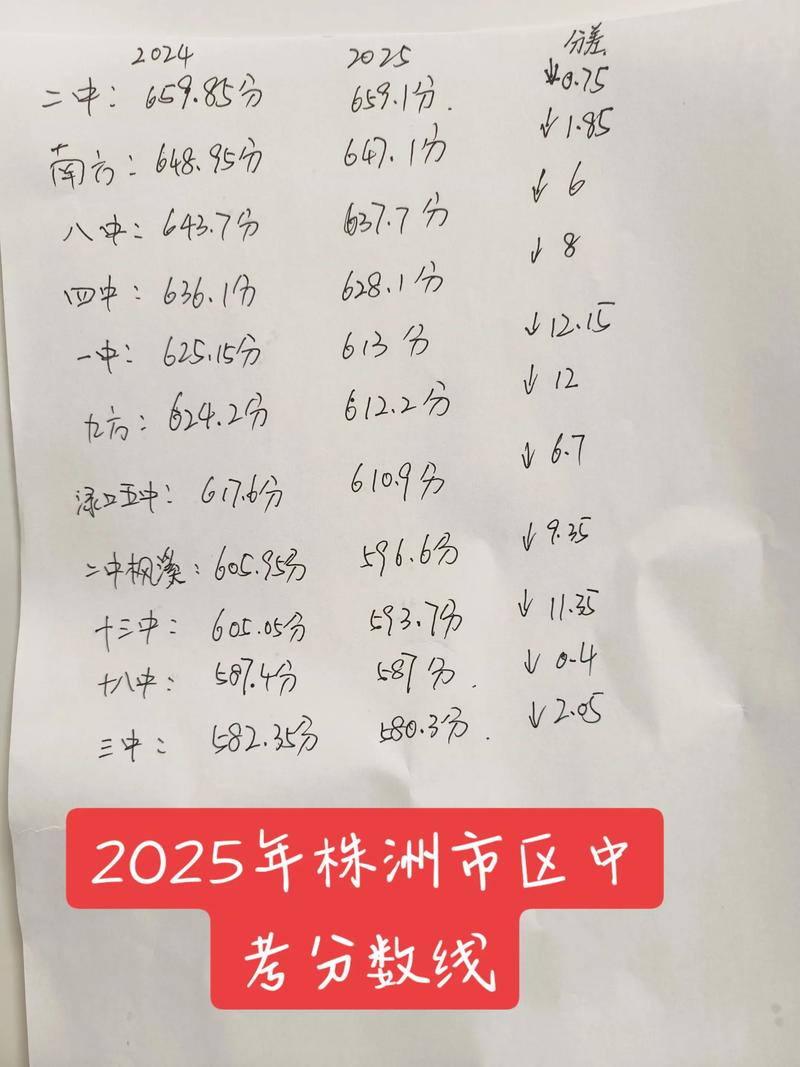 2024 2025 分差
二中：659.85分 659.1分. ↓0.75
南方：648.95分 647.1分 ↓1.85
八中：643.7分 637.7分 ↓6
四中：636.1分 628.1分 ↓8
一中：625.15分 613分 ↓12.15
九方：624.2分 612.2分 ↓12
渌口五中：617.6分 610.9分 ↓6.7
二中枫溪：605.95分 596.6分 ↓9.35
十三中：605.05分 593.7分 ↓11.35
十八中：587.4分 587分. ↓0.4
三中：582.35分 580.3分. ↓2.05
2025年株洲市区中
考分数线